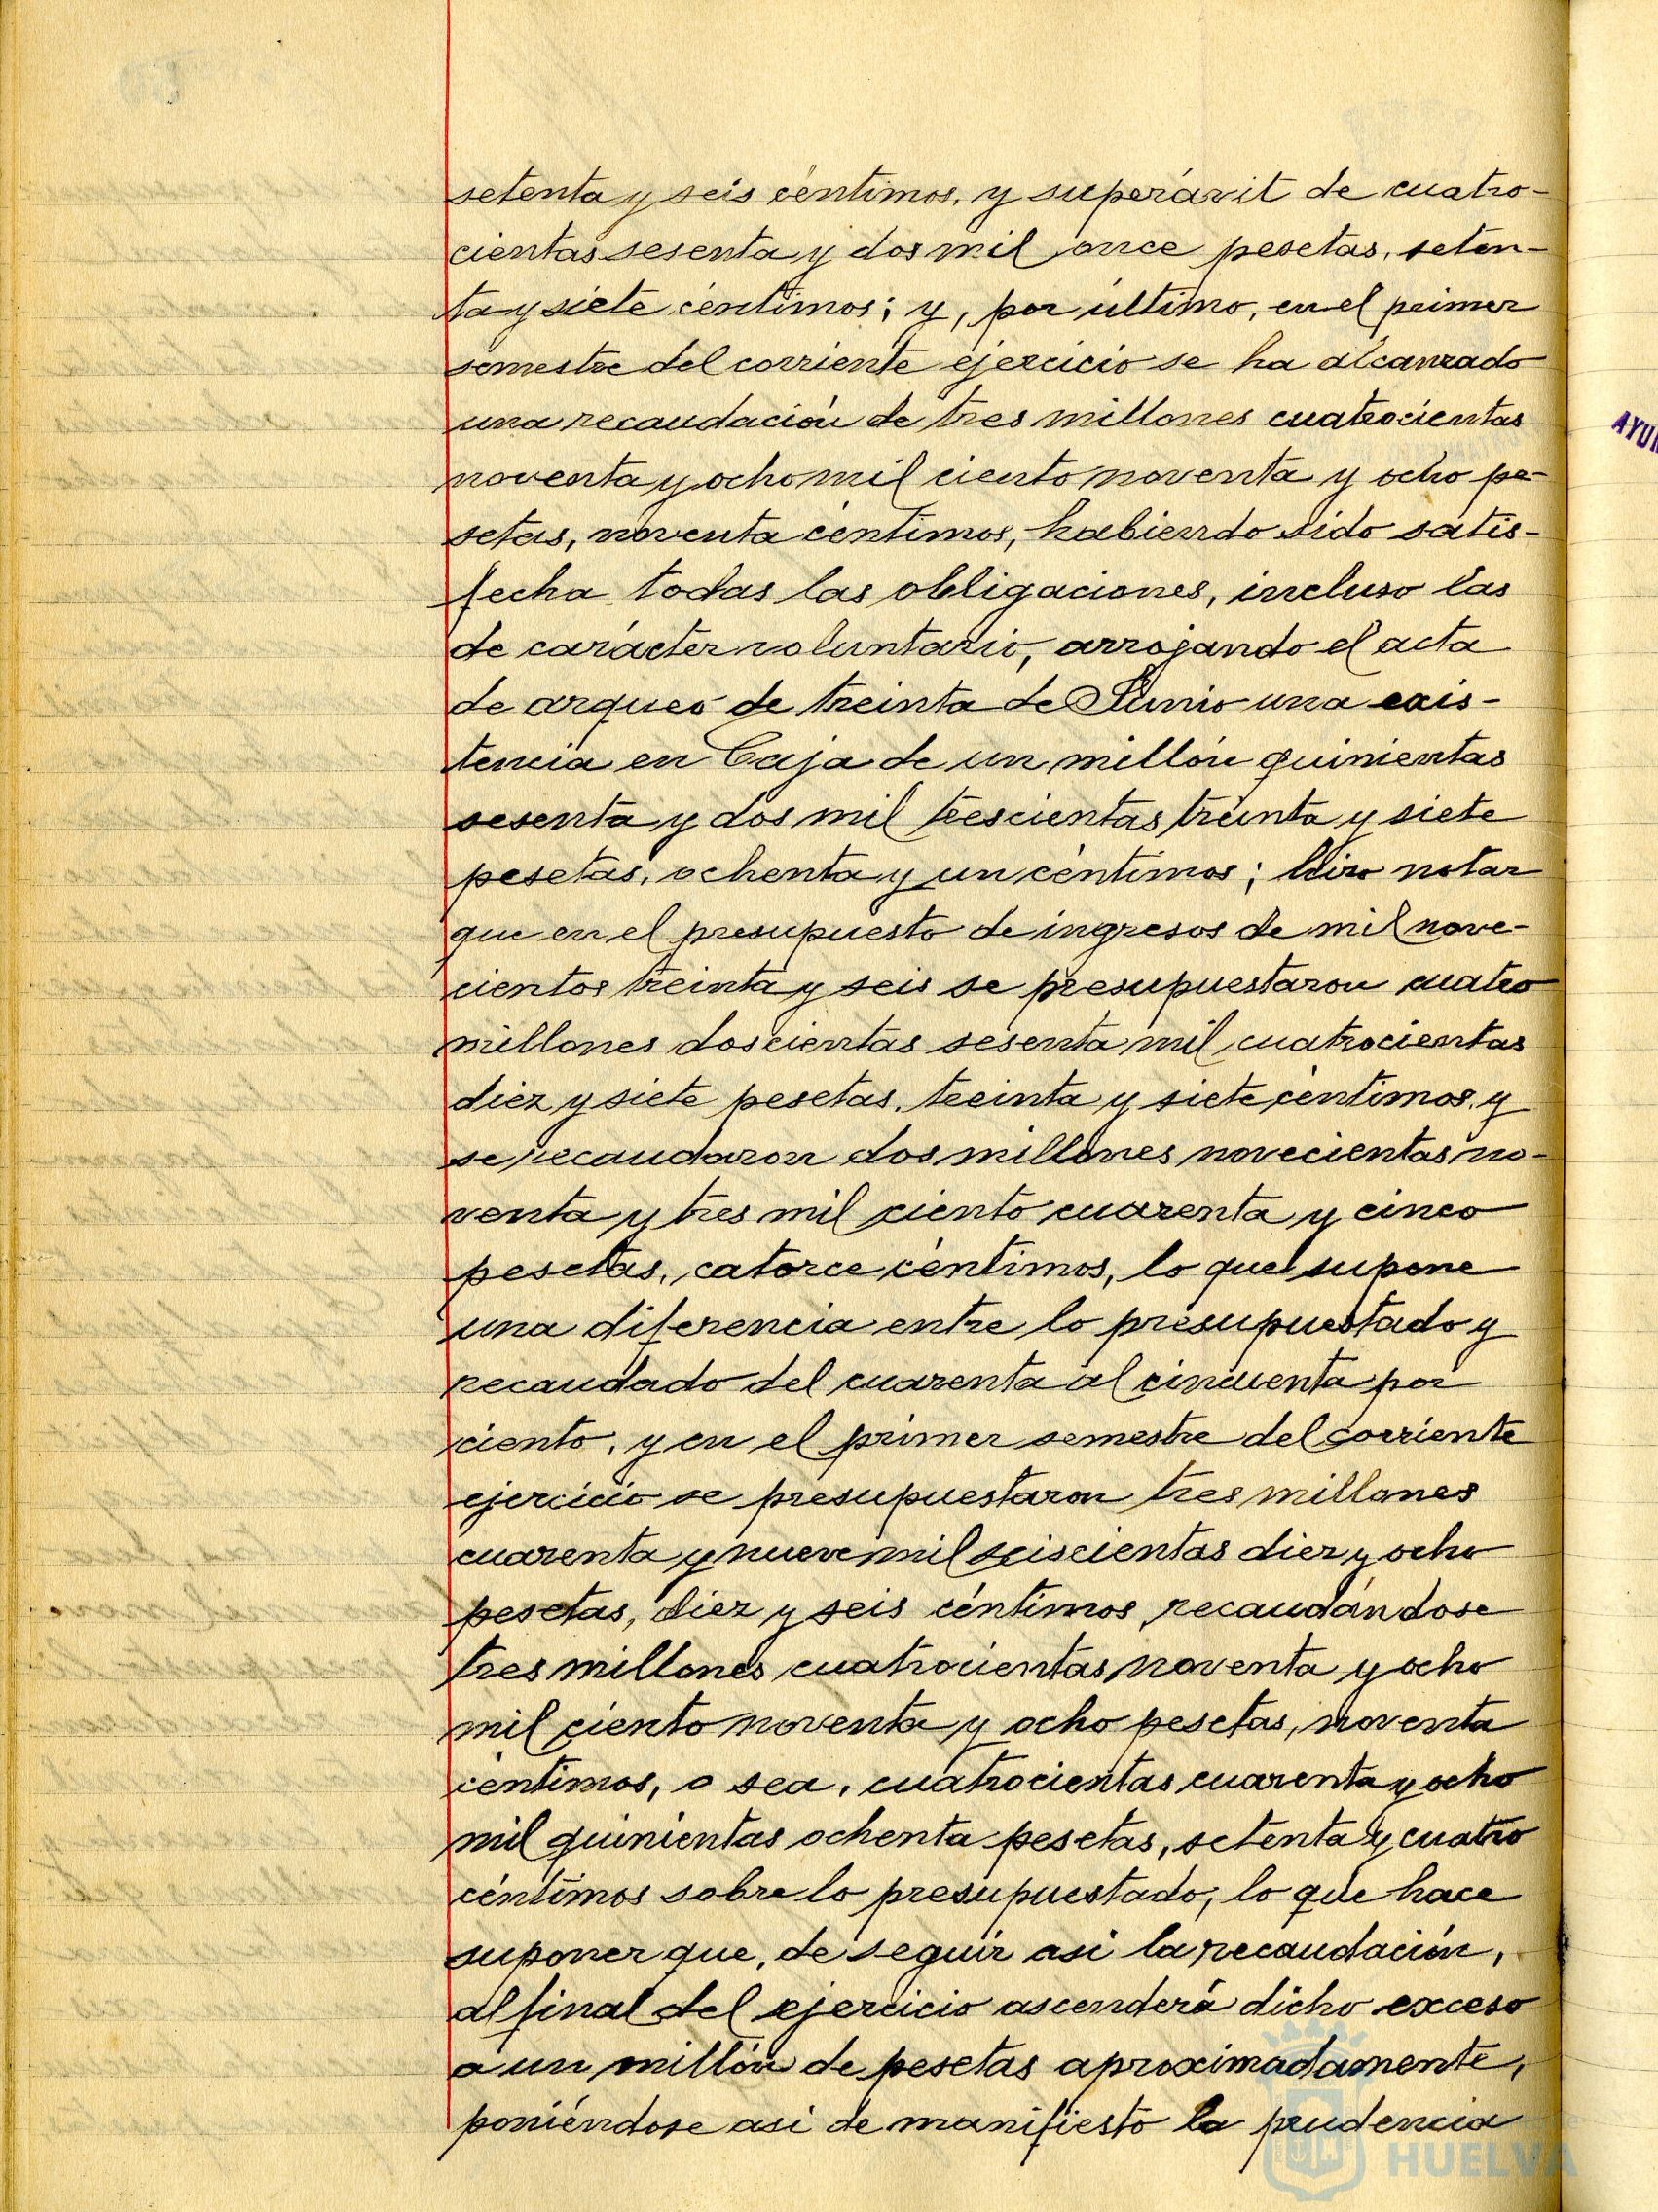 setenta y seis céntimos, y superávit de cuatro-
cientas sesenta y dos mil once pesetas, seten-
ta y siete céntimos; y, por último, en el primer
semestre del corriente ejercicio se ha alcanzado
una recaudación de tres millones cuatrocientas
noventa y ocho mil ciento noventa y ocho pe-
setas, noventa céntimos, habiendo sido satis-
fecha todas las obligaciones, incluso las
de carácter voluntario, arrojando el acta
de arqueo de treinta de Junio una exis-
tencia en Caja de un millón quinientas
sesenta y dos mil trescientas treinta y siete
pesetas, ochenta y un céntimos; hizo notar
que en el presupuesto de ingresos de mil nove-
cientos treinta y seis se presupuestaron cuatro
millones doscientas sesenta mil cuatrocientas
diez y siete pesetas, treinta y siete céntimos, y
se recaudaron dos millones novecientas no-
venta y tres mil ciento cuarenta y cinco
pesetas, catorce céntimos, lo que supone
una diferencia entre lo presupuestado y
recaudado del cuarenta al cincuenta por
ciento, y en el primer semestre del corriente
ejercicio se presupuestaron tres millones
cuarenta y nueve mil seiscientas diez y ocho
pesetas, diez y seis céntimos, recaudándose
tres millones cuatrocientas noventa y ocho
mil ciento noventa y ocho pesetas, noventa
céntimos, o sea, cuatrocientas cuarenta y ocho
mil quinientas ochenta pesetas, setenta y cuatro
céntimos sobre lo presupuestado, lo que hace
suponer que, de seguir asi la recaudación,
al final del ejercicio ascenderá dicho exceso
a un millón de pesetas aproximadamente,
poniéndose asi de manifiesto la prudencia
HUELVA